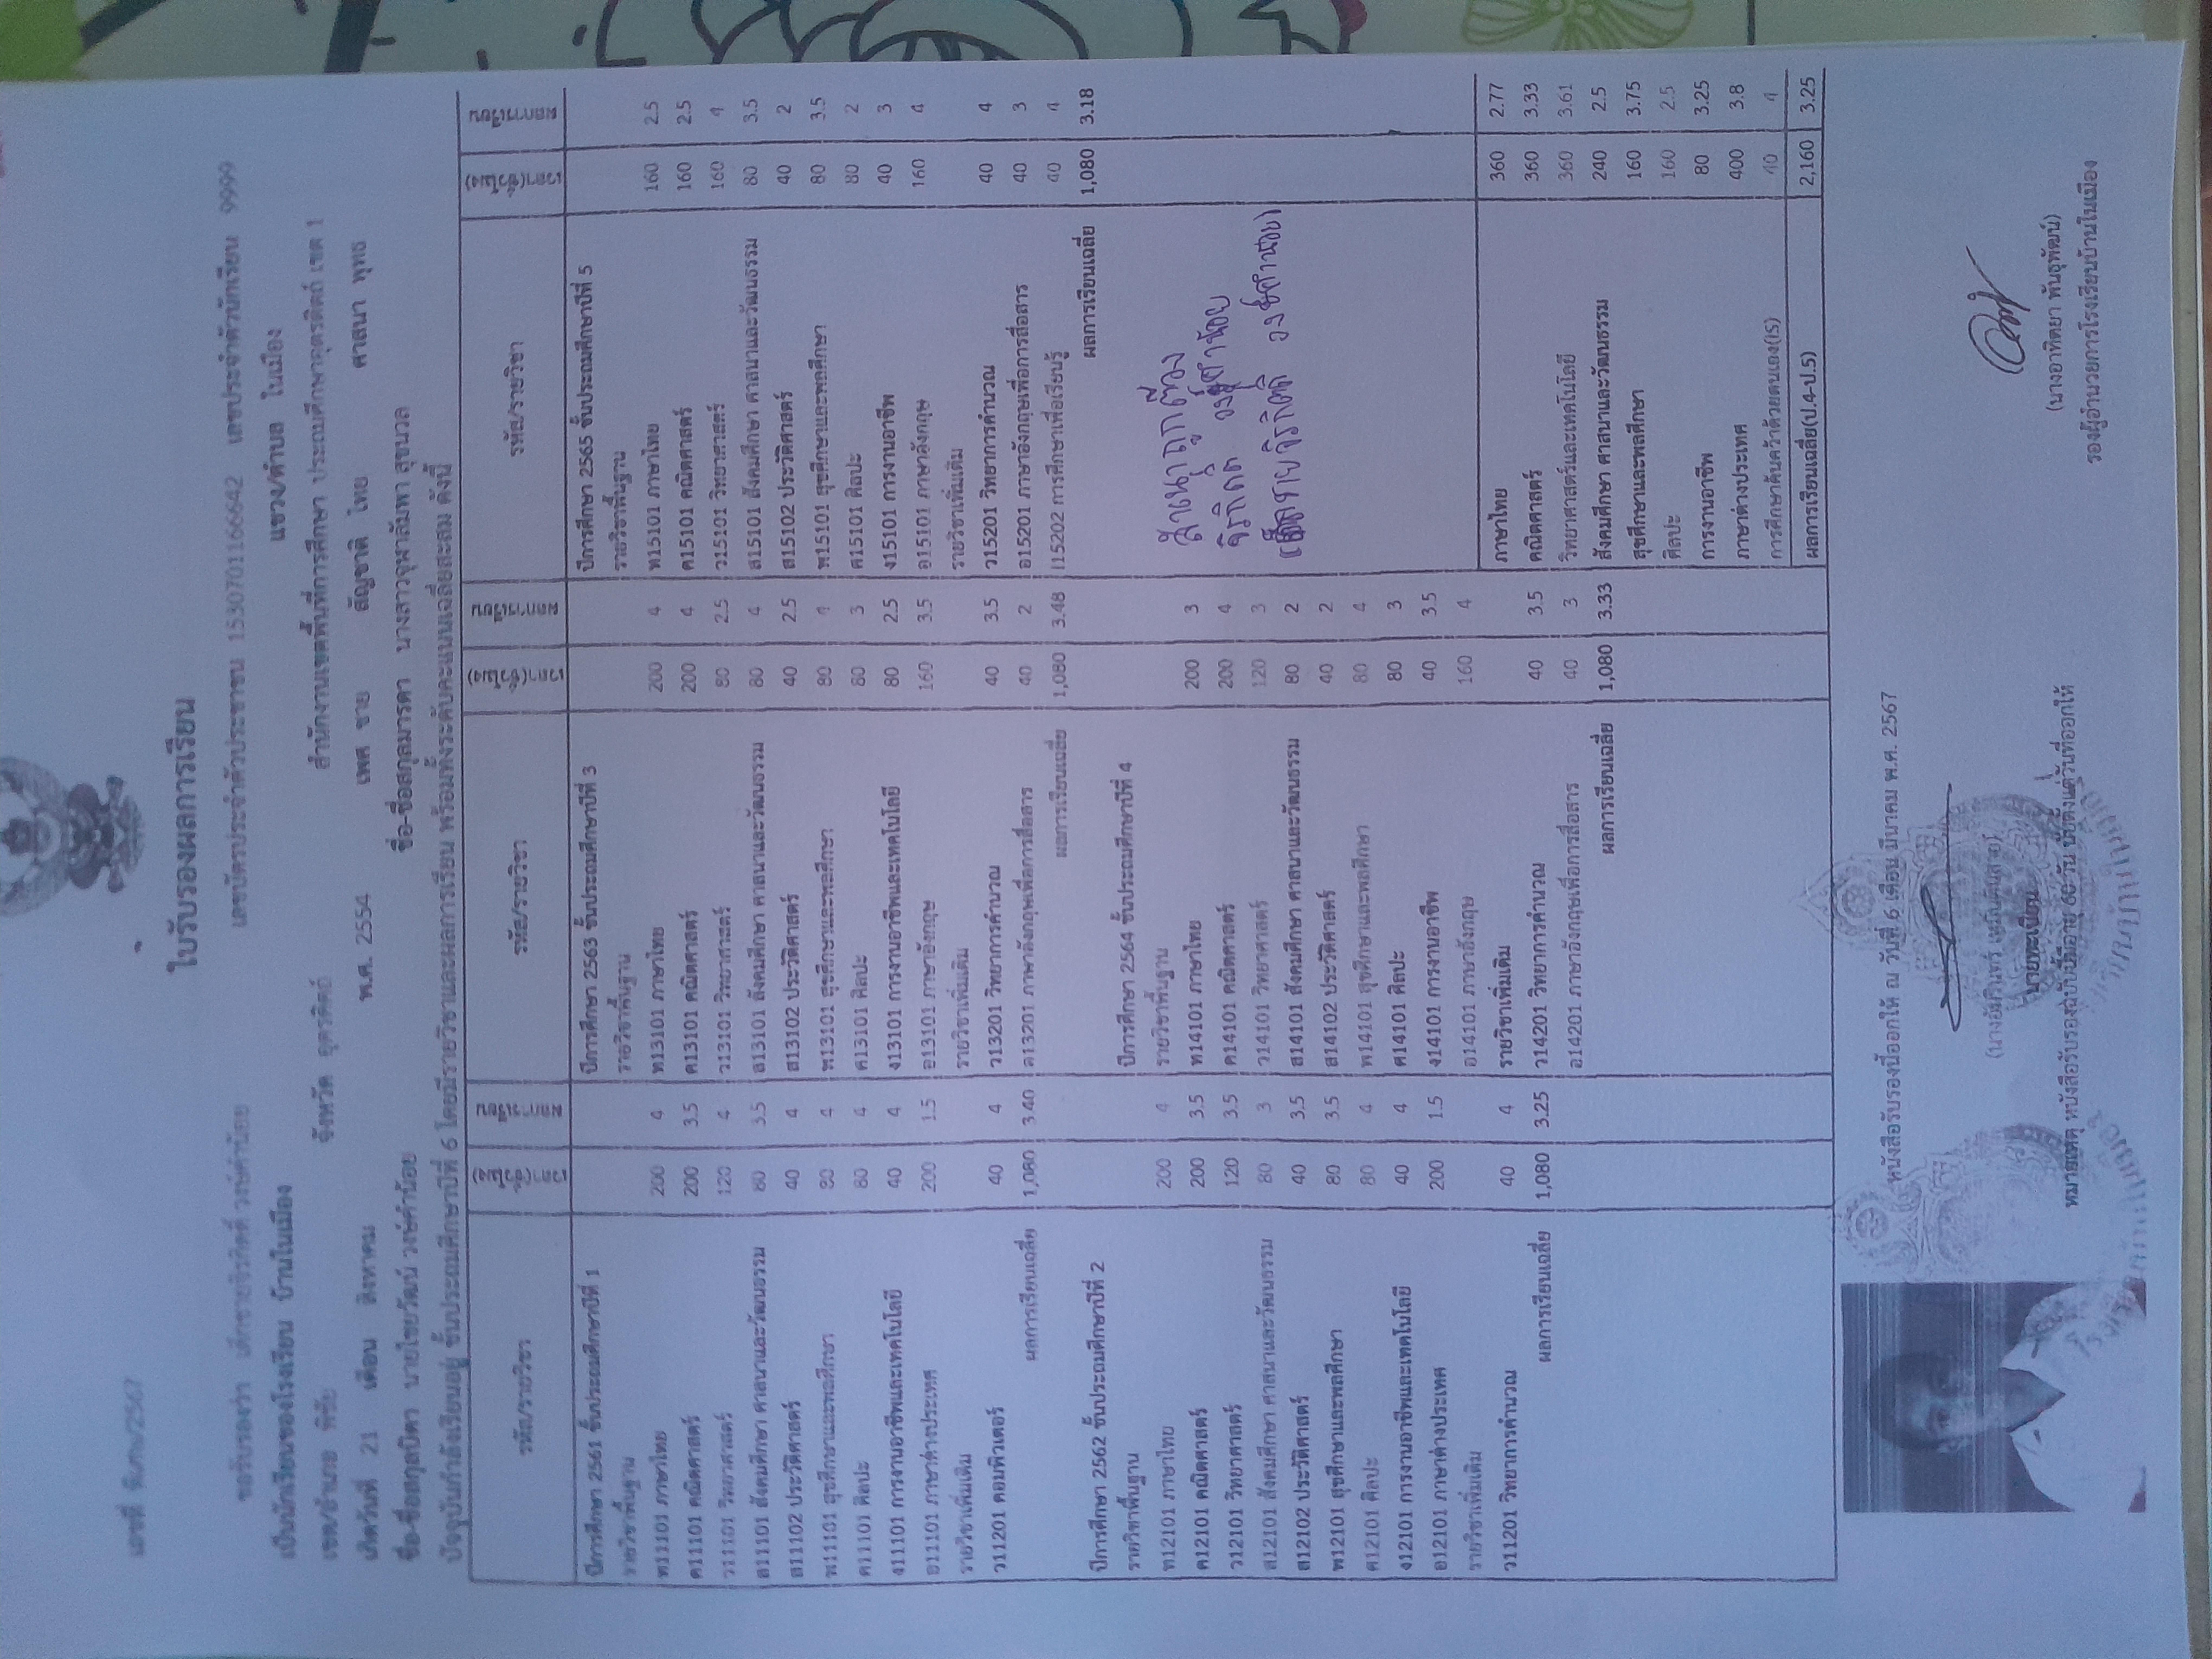 ใบรับรองผลการเรียน
เลขที่ พิเศษ/2567
ขอรับรองว่า เด็กชายจิรกิตติ์ วงษ์คำน้อย เลขบัตรประจำตัวประชาชน 1530701166642 เลขประจำตัวนักเรียน 9999
เป็นนักเรียนของโรงเรียน บ้านในเมือง แขวง/ตำบล ในเมือง
เขต/อำเภอ พิชัย จังหวัด อุตรดิตถ์ สำนักงานเขตพื้นที่การศึกษา ประถมศึกษาอุตรดิตถ์ เขต 1
เกิดวันที่ 21 เดือน สิงหาคม พ.ศ. 2554 เพศ ชาย สัญชาติ ไทย ศาสนา พุทธ
ชื่อ-ชื่อสกุลบิดา นายไชยวัฒน์ วงษ์คำน้อย ชื่อ-ชื่อสกุลมารดา นางสาวจุฬาลัมพา สุขนวล
ปัจจุบันกำลังเรียนอยู่ ชั้นประถมศึกษาปีที่ 6 โดยมีรายวิชาและผลการเรียน พร้อมทั้งระดับคะแนนเฉลี่ยสะสม ดังนี้
รหัส/รายวิชา เวลา(ชั่วโมง) ผลการเรียน
ปีการศึกษา 2561 ชั้นประถมศึกษาปีที่ 1
รายวิชาพื้นฐาน
ท11101 ภาษาไทย 200 4
ค11101 คณิตศาสตร์ 200 3.5
ว11101 วิทยาศาสตร์ 120 4
ส11101 สังคมศึกษา ศาสนาและวัฒนธรรม 80 3.5
ส11102 ประวัติศาสตร์ 40 4
พ11101 สุขศึกษาและพลศึกษา 80 4
ศ11101 ศิลปะ 80 4
ง11101 การงานอาชีพและเทคโนโลยี 40 4
อ11101 ภาษาต่างประเทศ 200 1.5
รายวิชาเพิ่มเติม
ว11201 คอมพิวเตอร์ 40 4
ผลการเรียนเฉลี่ย 1,080 3.40
ปีการศึกษา 2562 ชั้นประถมศึกษาปีที่ 2
รายวิชาพื้นฐาน
ท12101 ภาษาไทย 200 4
ค12101 คณิตศาสตร์ 200 3.5
ว12101 วิทยาศาสตร์ 120 3.5
ส12101 สังคมศึกษา ศาสนาและวัฒนธรรม 80 3
ส12102 ประวัติศาสตร์ 40 3.5
พ12101 สุขศึกษาและพลศึกษา 80 3.5
ศ12101 ศิลปะ 80 4
ง12101 การงานอาชีพและเทคโนโลยี 40 4
อ12101 ภาษาต่างประเทศ 200 1.5
รายวิชาเพิ่มเติม
ว11201 วิทยาการคำนวณ 40 4
ผลการเรียนเฉลี่ย 1,080 3.25
รหัส/รายวิชา เวลา(ชั่วโมง) ผลการเรียน
ปีการศึกษา 2563 ชั้นประถมศึกษาปีที่ 3
รายวิชาพื้นฐาน
ท13101 ภาษาไทย 200 4
ค13101 คณิตศาสตร์ 200 4
ว13101 วิทยาศาสตร์ 80 2.5
ส13101 สังคมศึกษา ศาสนาและวัฒนธรรม 80 4
ส13102 ประวัติศาสตร์ 40 2.5
พ13101 สุขศึกษาและพลศึกษา 80 4
ศ13101 ศิลปะ 80 3
ง13101 การงานอาชีพและเทคโนโลยี 80 2.5
อ13101 ภาษาอังกฤษ 160 3.5
รายวิชาเพิ่มเติม
ว13201 วิทยาการคำนวณ 40 3.5
อ13201 ภาษาอังกฤษเพื่อการสื่อสาร 40 2
ผลการเรียนเฉลี่ย 1,080 3.48
ปีการศึกษา 2564 ชั้นประถมศึกษาปีที่ 4
รายวิชาพื้นฐาน
ท14101 ภาษาไทย 200 3
ค14101 คณิตศาสตร์ 200 4
ว14101 วิทยาศาสตร์ 120 3
ส14101 สังคมศึกษา ศาสนาและวัฒนธรรม 80 2
ส14102 ประวัติศาสตร์ 40 2
พ14101 สุขศึกษาและพลศึกษา 80 4
ศ14101 ศิลปะ 80 3
ง14101 การงานอาชีพ 40 3.5
อ14101 ภาษาอังกฤษ 160 4
รายวิชาเพิ่มเติม
ว14201 วิทยาการคำนวณ 40 3.5
อ14201 ภาษาอังกฤษเพื่อการสื่อสาร 40 3
ผลการเรียนเฉลี่ย 1,080 3.33
รหัส/รายวิชา เวลา(ชั่วโมง) ผลการเรียน
ปีการศึกษา 2565 ชั้นประถมศึกษาปีที่ 5
รายวิชาพื้นฐาน
ท15101 ภาษาไทย 160 2.5
ค15101 คณิตศาสตร์ 160 2.5
ว15101 วิทยาศาสตร์ 160 4
ส15101 สังคมศึกษา ศาสนาและวัฒนธรรม 80 3.5
ส15102 ประวัติศาสตร์ 40 2
พ15101 สุขศึกษาและพลศึกษา 80 3.5
ศ15101 ศิลปะ 80 2
ง15101 การงานอาชีพ 40 3
อ15101 ภาษาอังกฤษ 160 4
รายวิชาเพิ่มเติม
ว15201 วิทยาการคำนวณ 40 4
อ15201 ภาษาอังกฤษเพื่อการสื่อสาร 40 3
I15202 การศึกษาเพื่อเรียนรู้ 40 4
ผลการเรียนเฉลี่ย 1,080 3.18
สำเนาถูกต้อง
จิรกิตติ์ วงษ์คำน้อย
(เด็กชายจิรกิตติ์ วงษ์คำน้อย)
ภาษาไทย 360 2.77
คณิตศาสตร์ 360 3.33
วิทยาศาสตร์และเทคโนโลยี 360 3.61
สังคมศึกษา ศาสนาและวัฒนธรรม 240 2.5
สุขศึกษาและพลศึกษา 160 3.75
ศิลปะ 160 2.5
การงานอาชีพ 80 3.25
ภาษาต่างประเทศ 400 3.8
การศึกษาค้นคว้าด้วยตนเอง(IS) 40 4
ผลการเรียนเฉลี่ย(ป.4-ป.5) 2,160 3.25
หนังสือรับรองนี้ออกให้ ณ วันที่ 6 เดือน มีนาคม พ.ศ. 2567
นายทะเบียน
หมายเหตุ หนังสือรับรองฉบับนี้มีอายุ 60 วัน นับตั้งแต่วันที่ออกให้
(นางอาทิตยา พันธุพัฒน์)
รองผู้อำนวยการโรงเรียนบ้านในเมือง